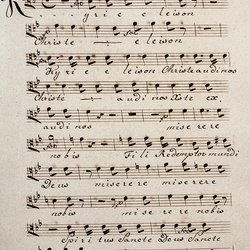 Kyrie eleison
Christe eleison
Kyrie eleison Christe audi nos
Christe audi nos Xste ex
audi nos miserere
nobis Fili Redemptor mundi
Deus miserere miserere
nobis miserere nobis
Spiritus Sancte Deus Sancte